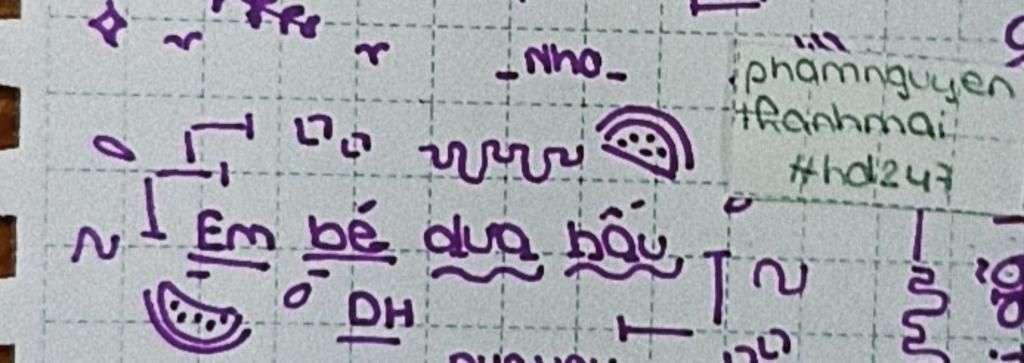 _Nho_
phamnguyen
thanhmai
#hd247
Em bé dưa hấu
DH